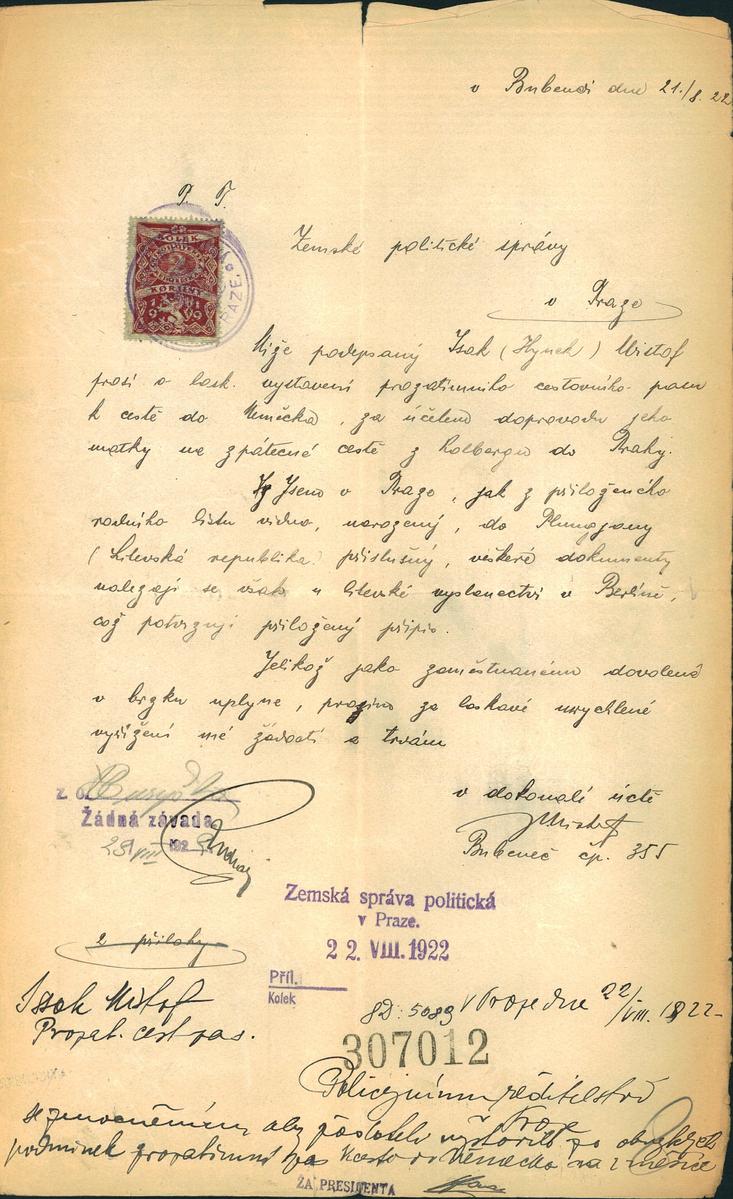 v Bubenči dne 21./8. 22
P. T.
KOLEK
2
KORUNY
1919
PRAZE.
Zemské politické správy
v Praze
Níže podepsaný Isak (Hynek) Mistof
prosí o lask. vystavení prozatimního cestovního pasu
k cestě do Německa, za účelem doprovodu jeho
matky na zpátečné cestě z Kolbergu do Prahy.
Jsem v Praze, jak z přiloženého
rodného listu vidno, narozený, do Plungjany
(Litevská republika) příslušný, veškeré dokumenty
nalezají se však u litevské vyslanectví v Berlíně,
což potvrzují přiložený přípis.
Jelikož jako zaměstnanému dovolená
v brzku uplyne, prosím za laskavé urychlené
vyřízení mé žádosti a trvám
v dokonalé úctě
Mistof
Bubeneč čp. 355
Žádná závada
29/VIII 192
Zemská správa politická
v Praze.
22. VIII. 1922
Příl.
Kolek
2 přílohy
Isak Mistof
Prozat. cest. pas.
8D: 5089 V Praze dne 22/VIII. 1922
307012
Policejnímu ředitelství
v Praze
se zmocněním, aby žadateli vystavilo po obvyklých
podmínek prozatimní pas k cestě do Německa na 2 měsíce
ZA PRESIDENTA